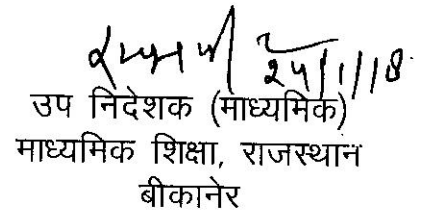 25/1/18
उप निदेशक (माध्यमिक)
माध्यमिक शिक्षा, राजस्थान
बीकानेर